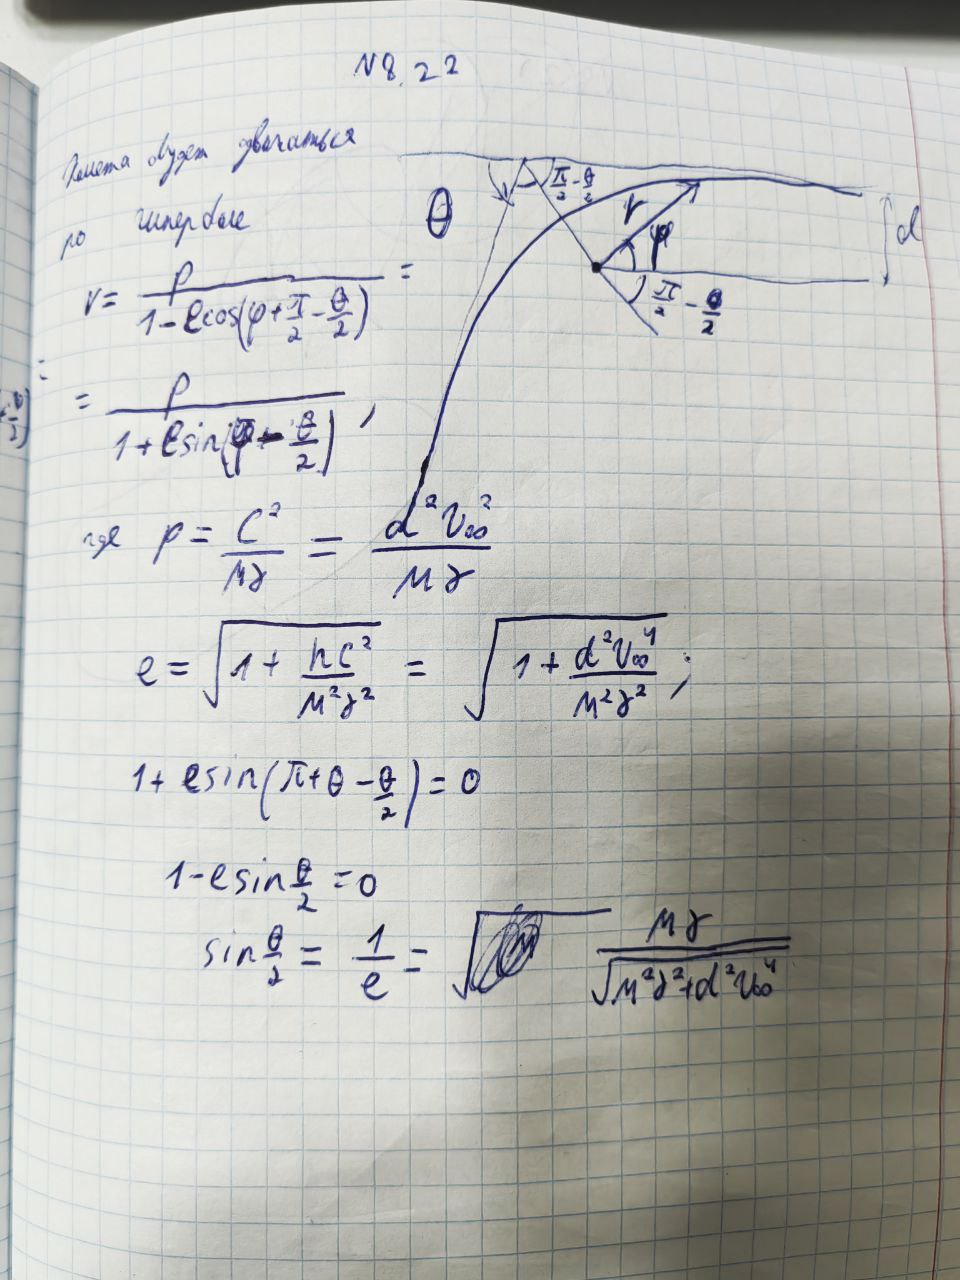 N 8.22
Комета будет двигаться
по гиперболе
r = p / (1 - e cos(φ + π/2 - θ/2)) =
= p / (1 + e sin(φ - θ/2)),
где p = C² / Mγ = d² V∞² / Mγ
e = √(1 + hC² / M²γ²) = √(1 + d² V∞⁴ / M²γ²);
1 + e sin(π + θ - θ/2) = 0
1 - e sin θ/2 = 0
sin θ/2 = 1/e = Mγ / √(M²γ² + d² V∞⁴)
θ
π/2 - θ/2
r
φ
d
π/2 - θ/2